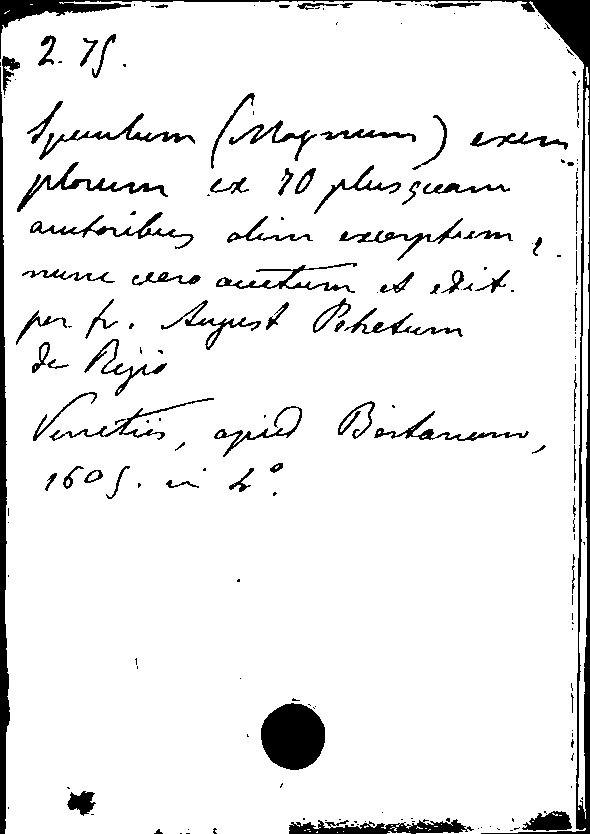 2. 75.
Speculum (Magnum) exem
plorum ex 70 plusquam
auctoribus olim excerptum,
nunc vero auctum et edit.
per fr. August Pehetum
de Regio
Venetiis, apud Bertanum,
1605. in 4°.